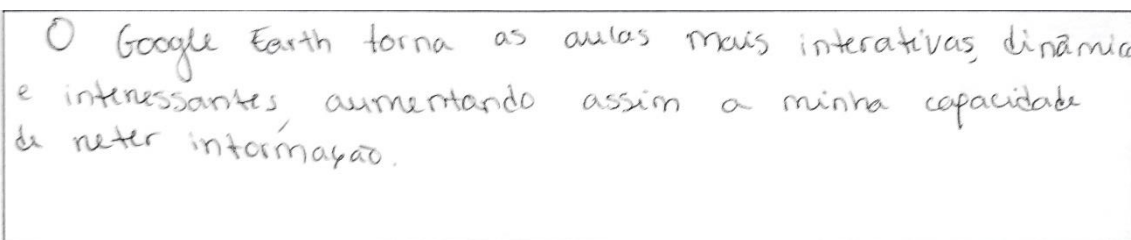 O Google Earth torna as aulas mais interativas, dinâmic
e interessantes, aumentando assim a minha capacidade
de reter informação.